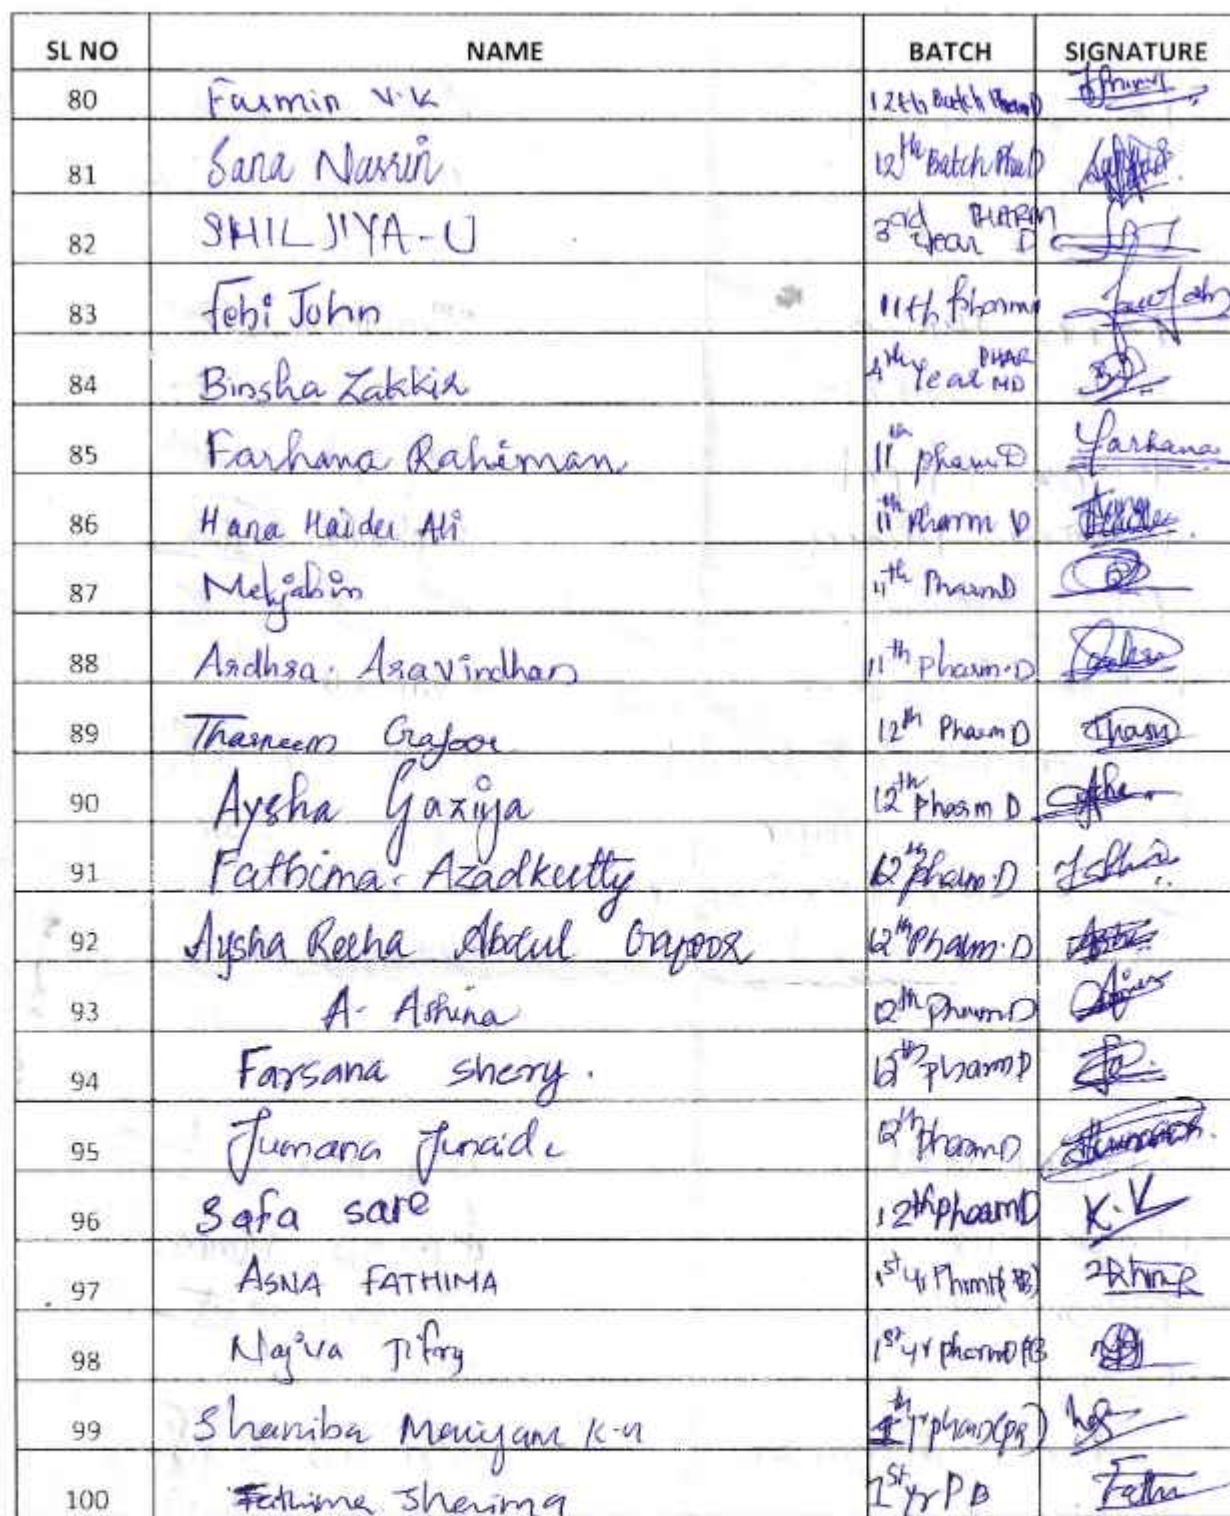 SL NO NAME BATCH SIGNATURE
80 Farmin V.K 12th Batch PharmD
81 Sana Nasrin 12th Batch PhaD
82 SHILJIYA-U 3rd Year PHARM D
83 Febi John 11th Pharm
84 Binsha Zakkir 4th Year PHAR MD
85 Farhana Rahiman 11th pharm D Farhana
86 Hana Haider Ali 11th Pharm D
87 Mehjabin 11th PharmD
88 Ardhra. Aravindhan 11th Pharm.D
89 Thasneem Gafoor 12th Pharm D Thasn
90 Aysha Gaziya 12th Pharm D
91 Fathima. Azadkutty 12th Pharm.D
92 Aysha Reeha Abdul Gafoor 12th Pharm.D
93 A. Ashina 12th PharmD
94 Farsana shery. 12th pharmD
95 Jumana Junaid 12th PharmD
96 Safa sare 12th PharmD K.K
97 ASNA FATHIMA 1st yr (PB)
98 Najva Jifry 1st yr pharmD PB
99 Shaniba Mariyam K.n yr pharD(PB)
100 Fathima Sherima 1st yr P B Fathi